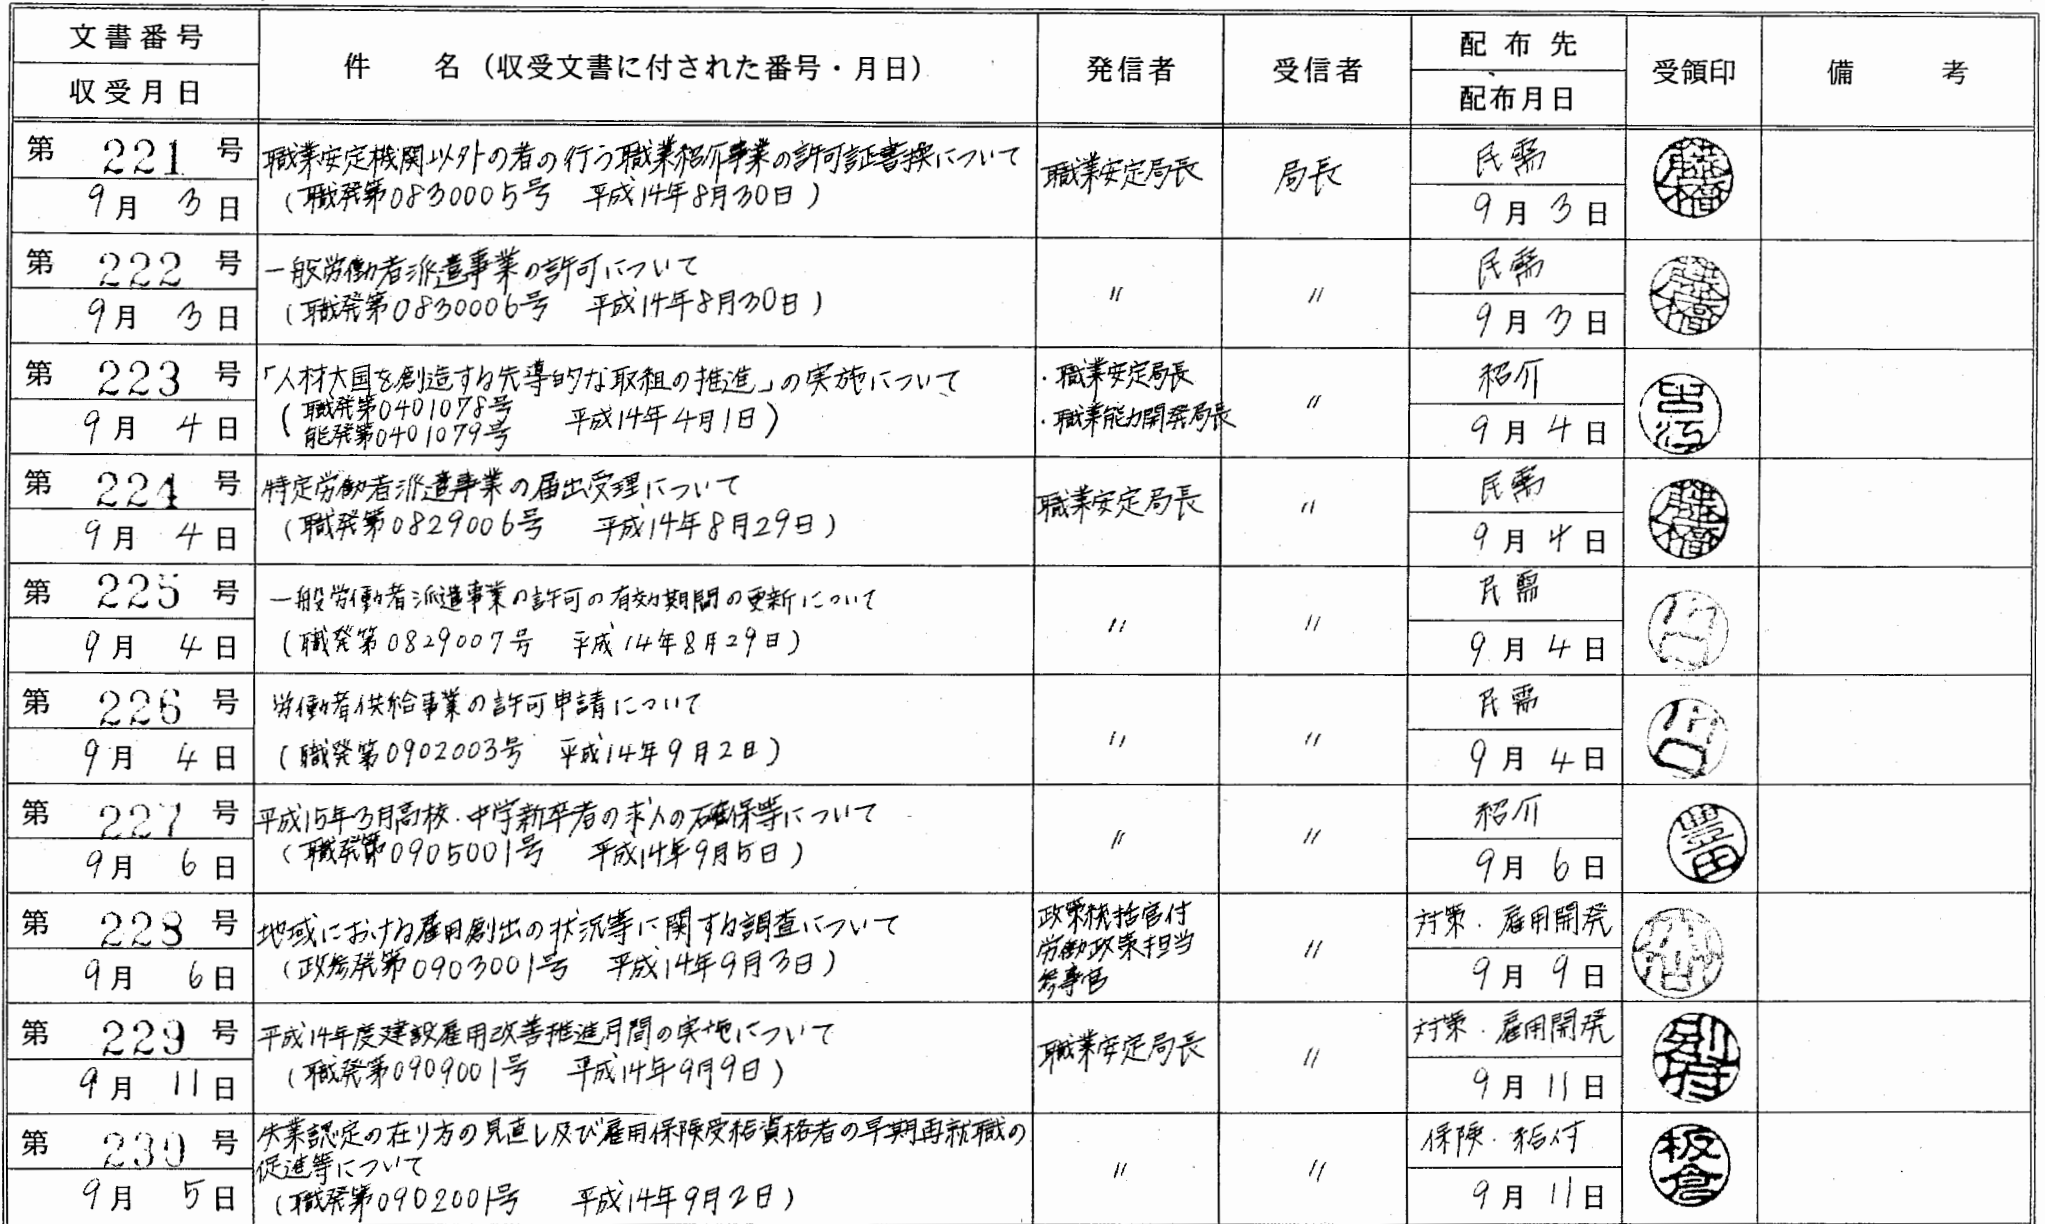 文書番号
収受月日
件　名（収受文書に付された番号・月日）
発信者
受信者
配布先
配布月日
受領印
備　考
第 221 号
9月 3日
職業安定機関以外の者の行う職業紹介事業の許可証書換について
（職発第0830005号　平成14年8月30日）
職業安定局長
局長
民需
9月 3日
藤橋
第 222 号
9月 3日
一般労働者派遣事業の許可について
（職発第0830006号　平成14年8月30日）
〃
〃
民需
9月 3日
藤橋
第 223 号
9月 4日
「人材大国を創造する先導的な取組の推進」の実施について
（職発第0401078号
能発第0401079号　平成14年4月1日）
・職業安定局長
・職業能力開発局長
〃
紹介
9月 4日
第 224 号
9月 4日
特定労働者派遣事業の届出受理について
（職発第0829006号　平成14年8月29日）
職業安定局長
〃
民需
9月 4日
藤橋
第 225 号
9月 4日
一般労働者派遣事業の許可の有効期間の更新について
（職発第0829007号　平成14年8月29日）
〃
〃
民需
9月 4日
第 226 号
9月 4日
労働者供給事業の許可申請について
（職発第0902003号　平成14年9月2日）
〃
〃
民需
9月 4日
第 227 号
9月 6日
平成15年3月高校・中学新卒者の求人の確保等について
（職発第0905001号　平成14年9月5日）
〃
〃
紹介
9月 6日
豊田
第 228 号
9月 6日
地域における雇用創出の状況等に関する調査について
（政参発第0903001号　平成14年9月3日）
政策統括官付
労働政策担当
参事官
〃
対策・雇用開発
9月 9日
第 229 号
9月 11日
平成14年度建設雇用改善推進月間の実施について
（職発第0909001号　平成14年9月9日）
職業安定局長
〃
対策・雇用開発
9月 11日
別府
第 230 号
9月 5日
失業認定の在り方の見直し及び雇用保険受給資格者の早期再就職の
促進等について
（職発第0902001号　平成14年9月2日）
〃
〃
保険・給付
9月 11日
板倉